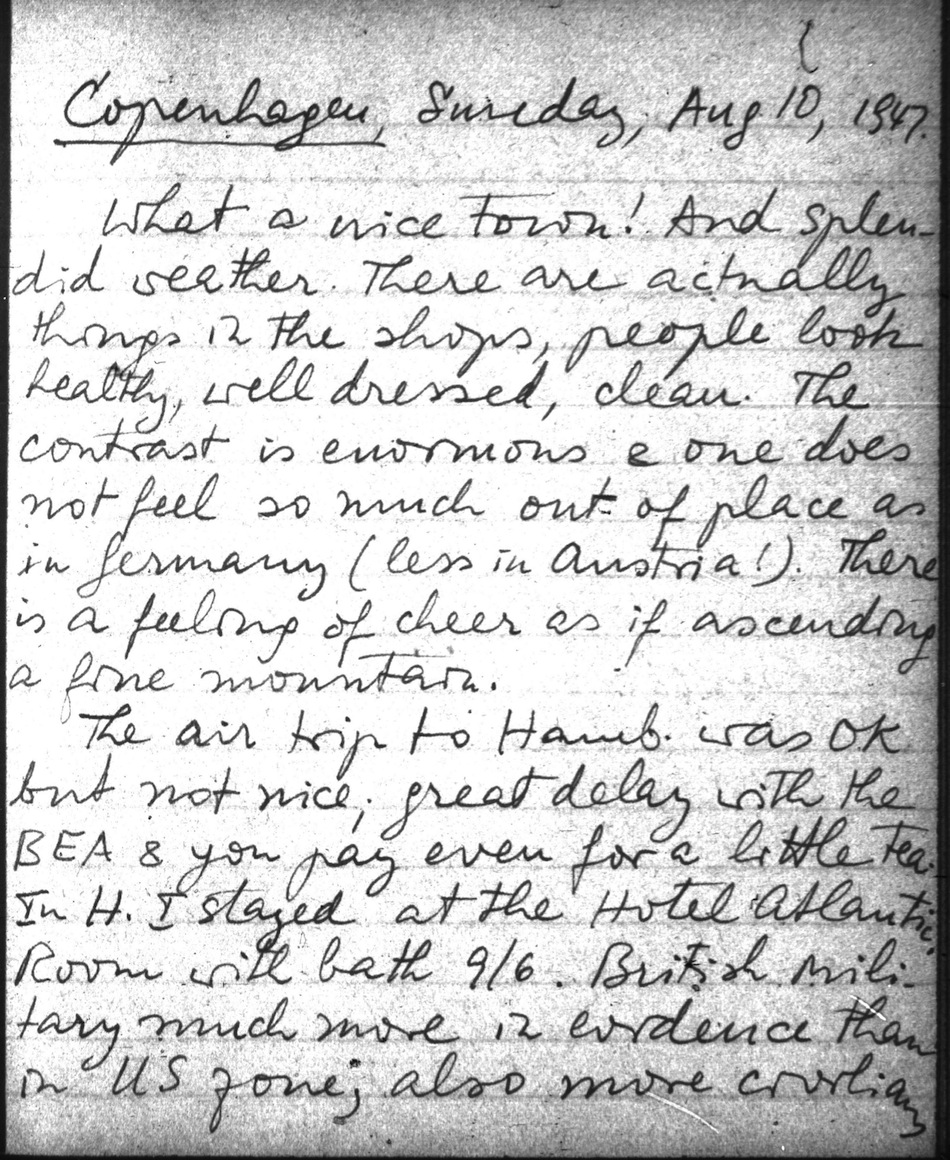 Copenhagen, Sunday, Aug 10, 1947.
What a nice town! And splen-
did weather. There are actually
things in the shops, people look
healthy, well dressed, clean. The
contrast is enormous & one does
not feel so much out of place as
in Germany (less in Austria!). There
is a feeling of cheer as if ascending
a fine mountain.
The air trip to Hamb. was OK
but not nice; great delay with the
BEA & you pay even for a little tea.
In H. I stayed at the Hotel Atlantic.
Room with bath 9/6. British mili-
tary much more in evidence than
in US zone; also more civilians